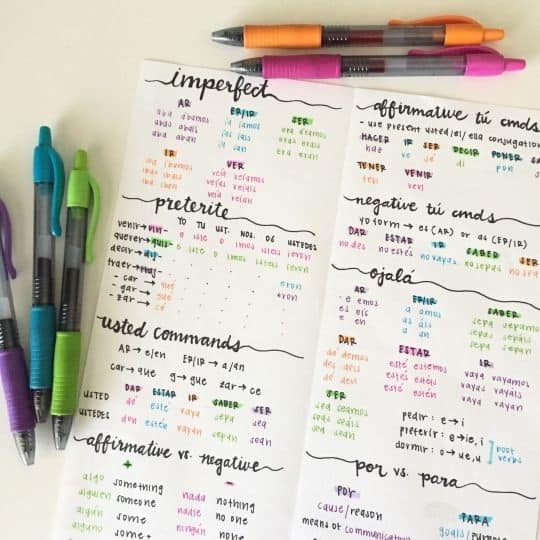 imperfect
AR ER/IR SER
aba ábamos ía íamos era éramos
abas abais ías íais eras erais
aba aban ía ían era eran
IR VER
iba íbamos veía veíamos
ibas ibais veías veíais
iba iban veía veían
preterite
YO TU UST. NOS. OS USTEDES
venir → vin- e iste o imos isteis ieron
querer → quis- e iste o imos isteis ieron
decir → dij- eron
traer → traj- eron
- car → qué
- gar → gué
- zar → cé
usted commands
AR → e/en ER/IR → a/an
car → que g → gue zar → ce
DAR ESTAR IR SABER SER
USTED dé esté vaya sepa sea
USTEDES den estén vayan sepan sean
affirmative vs. negative
+ -
algo something nada nothing
alguien someone nadie no one
algún some ningún none
alguno some
affirmative tú cmds
- use present usted/el/ella conjugation
HACER IR SER DECIR PONER
haz ve sé di pon
TENER VENIR
ten ven
negative tú cmds
yo form → es (AR) or as (ER/IR)
DAR ESTAR IR SABER SER
no des no estés no vayas no sepas no seas
ojalá
AR ER/IR SABER
e emos a amos sepa sepamos
es éis as áis sepas sepáis
e en a an sepa sepan
DAR ESTAR IR
dé demos esté estemos vaya vayamos
des deis estés estéis vayas vayáis
dé den esté estén vaya vayan
SER
sea seamos
seas seáis
sea sean
pedir : e → i
preferir : e → ie, i
dormir : o → ue, u
boot verbs
por vs. para
POR PARA
cause/reason goals/purpose
means of communication